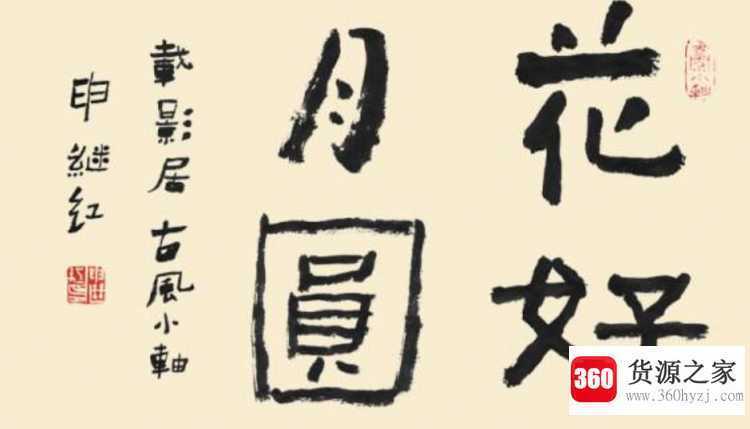 花好
月圓
載影居古風小軸
申継红
360
货源之家
www.360hyzj.com